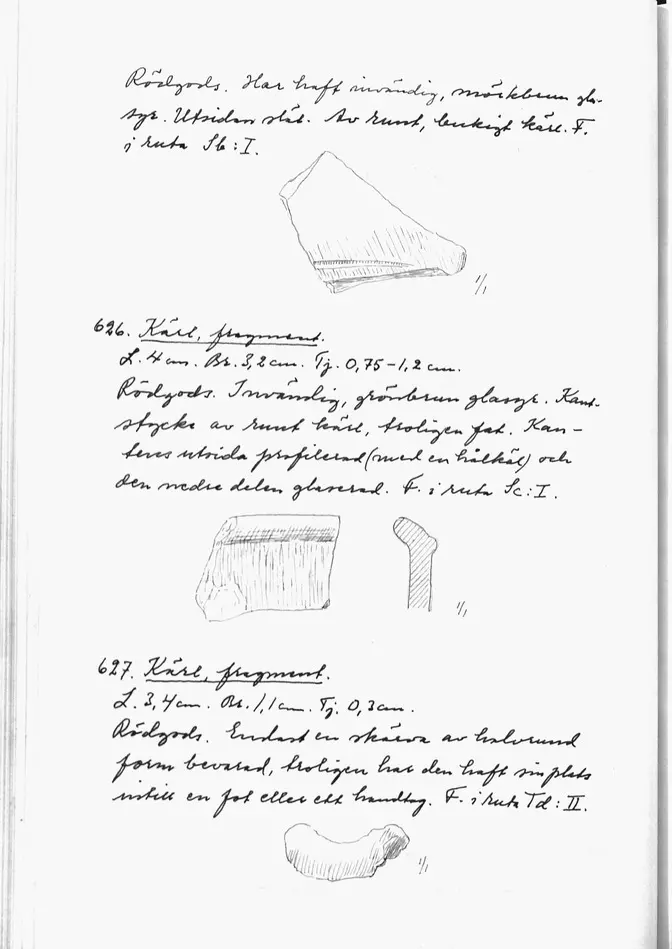 Rödgods. Har haft invändig, mörkbrun gla-
syr. Utsidan slät. Av runt, buckigt kärl. F.
i ruta Sb:I.
1/1
626. Kärl, fragment.
L. 4 cm. Br. 3,2 cm. Tj. 0,75-1,2 cm.
Rödgods. Invändig, grönbrun glasyr. Kant-
stycke av runt kärl, troligen fat. Kan-
tens utsida profilerad (med en hålkäl) och
den nedre delen glaserad. F. i ruta Sc:I.
1/1
627. Kärl, fragment.
L. 3,4 cm. Br. 1,1 cm. Tj. 0,3 cm.
Rödgods. Endast en skärva av halvrund
form bevarad, troligen har den haft sin plats
intill en fot eller ett handtag. F. i ruta Td:II.
1/1